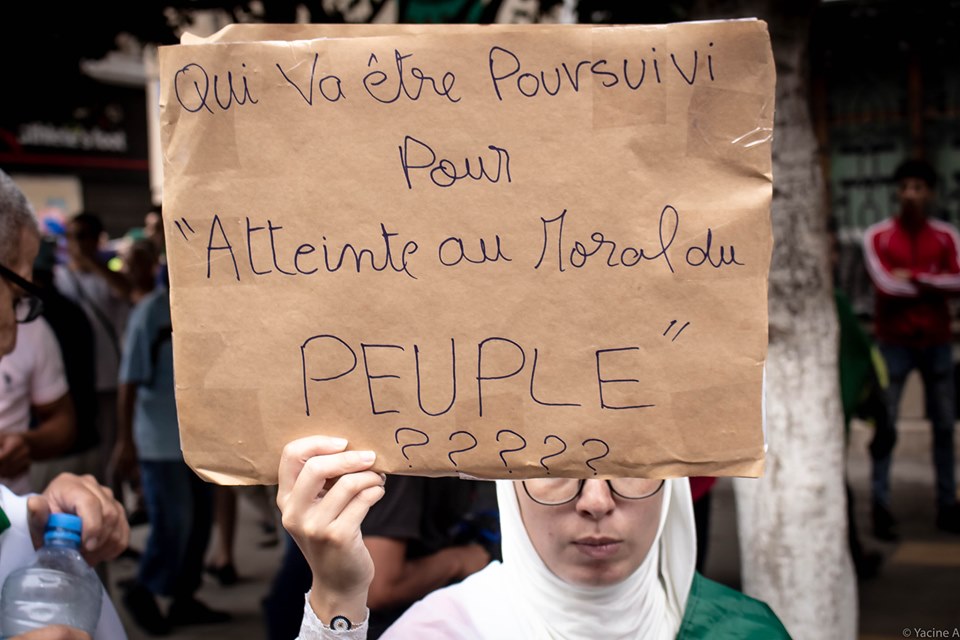 Qui Va être Poursuivi
Pour
"Atteinte au Moral du
PEUPLE"
?????
© Yacine A